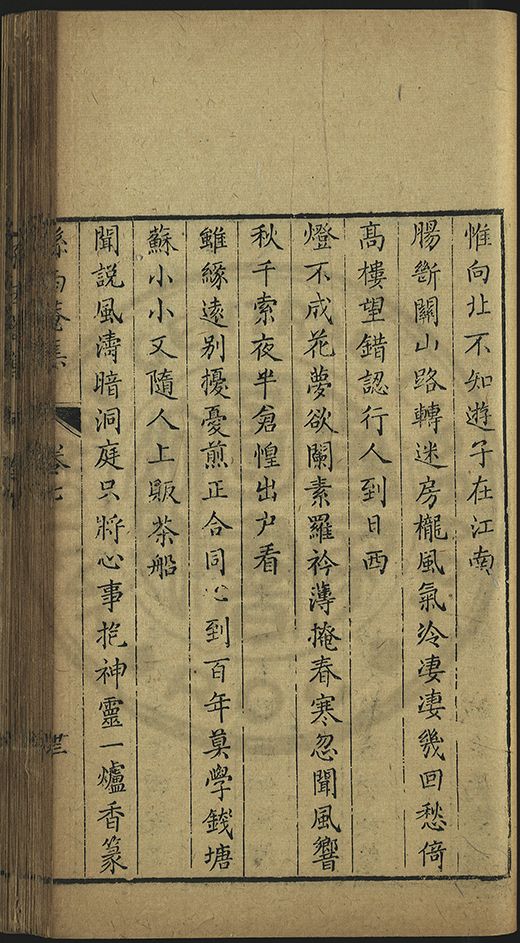 惟向北不知遊子在江南
腸斷關山路轉迷房櫳風氣冷凄凄幾回愁倚
高樓望錯認行人到日西
燈不成花夢欲闌素羅衿薄掩春寒忽聞風響
秋千索夜半倉惶出户看
雖緣逺别擾憂煎正合同心到百年莫學錢塘
蘇小小又隨人上販茶船
聞說風濤暗洞庭只將心事抱神靈一爐香篆
孫西菴集
卷七